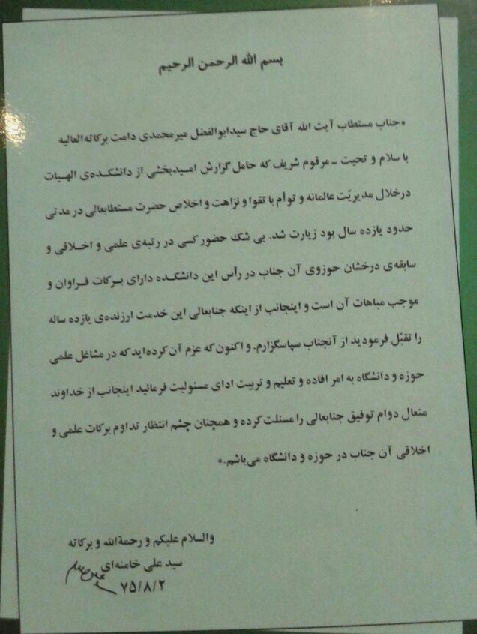 بسم الله الرحمن الرحیم
«جناب مستطاب آیت الله آقای حاج سیدابوالفضل میرمحمدی دامت برکاته‌العالیه
با سلام و تحیت ـ مرقوم شریف که حامل گزارش امیدبخشی از دانشکده‌ی الهیات
در خلال مدیریّت عالمانه و توأم با تقوا و نزاهت و اخلاص حضرت مستطابعالی در مدتی
حدود یازده سال بود زیارت شد. بی شک حضور کسی در رتبه‌ی علمی و اخلاقی و
سابقه‌ی درخشان حوزوی آن جناب در رأس این دانشکده دارای برکات فراوان و
موجب مباهات آن است و اینجانب از اینکه جنابعالی این خدمت ارزنده‌ی یازده ساله
را تقبّل فرمودید از آنجناب سپاسگزارم. و اکنون که عزم آن کرده‌اید که در مشاغل علمی
حوزه و دانشگاه به امر افاده و تعلیم و تربیت ادای مسئولیت فرمائید اینجانب از خداوند
متعال دوام توفیق جنابعالی را مسئلت کرده و همچنان چشم انتظار تداوم برکات علمی و
اخلاقی آن جناب در حوزه و دانشگاه می‌باشم.»
والسلام علیکم و رحمة‌الله و برکاته
سید علی خامنه‌ای
۷۵/۸/۲